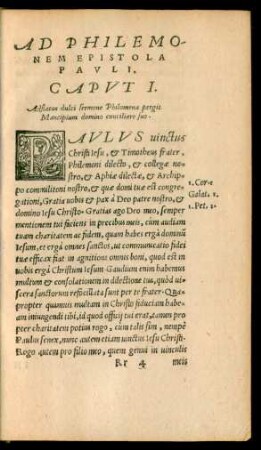 AD PHILEMO-
NEM EPISTOLA
PAVLI.
CAPVT I.
dulci sermone Philemona pergit
Mancipium domino conciliare suo.
PAVLVS uinctus
Christi Iesu, & Timotheus frater,
Philemoni dilecto, & collegæ no-
stro, & Aphiæ dilectæ, & Archip-
po commilitoni nostro, & quæ domi tuæ est congre-
gationi, Gratia uobis & pax à Deo patre nostro, &
domino Iesu Christo. Gratias ago Deo meo, semper
mentionem tui faciens in precibus meis, cum audiam
tuam charitatem ac fidem, quam habes ergà dominũ
Iesum, et ergà omnes sanctos, ut communicatio fidei
tuæ efficax fiat in agnitione omnis boni, quod est in
uobis ergà Christum Iesum. Gaudium enim habemus
multum & consolationem in dilectione tua, quòd ui-
scera sanctorum refocillata sunt per te frater. Qua-
propter quamuis multam in Christo fiduciam habe-
am iniungendi tibi, id quod officij tui erat, tamen pro
pter charitatem potius rogo, cum talis sim, nempè
Paulus senex, nunc autem etiam uinctus Iesu Christi.
Rogo autem pro filio meo, quem genui in uinculis
1. Cor.
Galat. 1.
1. Pet. 1.
4 meis